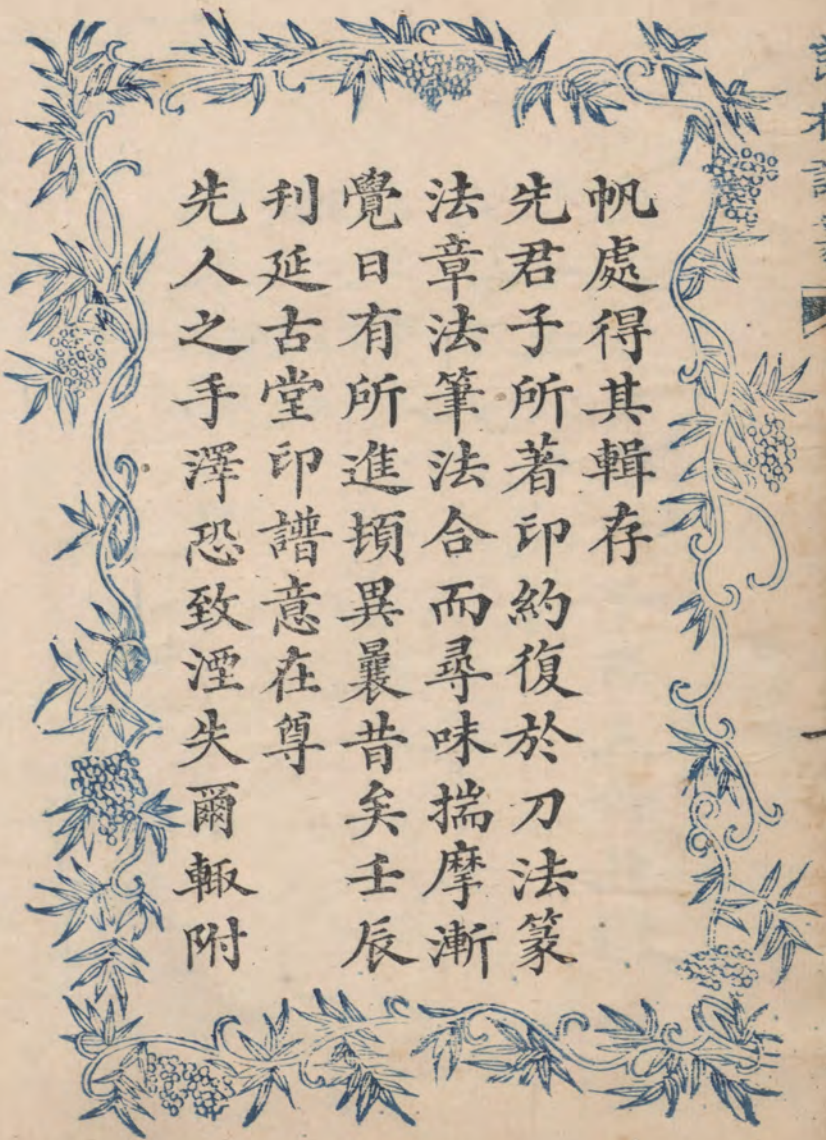 帆處得其輯存
先君子所著印約復於刀法篆
法章法筆法合而尋味揣摩漸
覺日有所進頃異曩昔矣壬辰
刊延古堂印譜意在尊
先人之手澤恐致湮失爾輙附